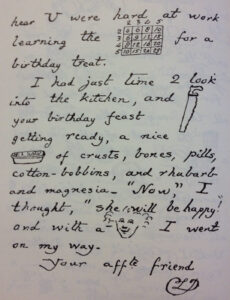 hear U were hard at work
learning the for a
birthday treat.
I had just time 2 look
into the kitchen, and
your birthday feast
getting ready, a nice
of crusts, bones, pills,
cotton-bobbins, and rhubarb
and magnesia - "Now," I
thought, "she will be happy!"
and with a I went
on my way.
Your affte friend
CLD